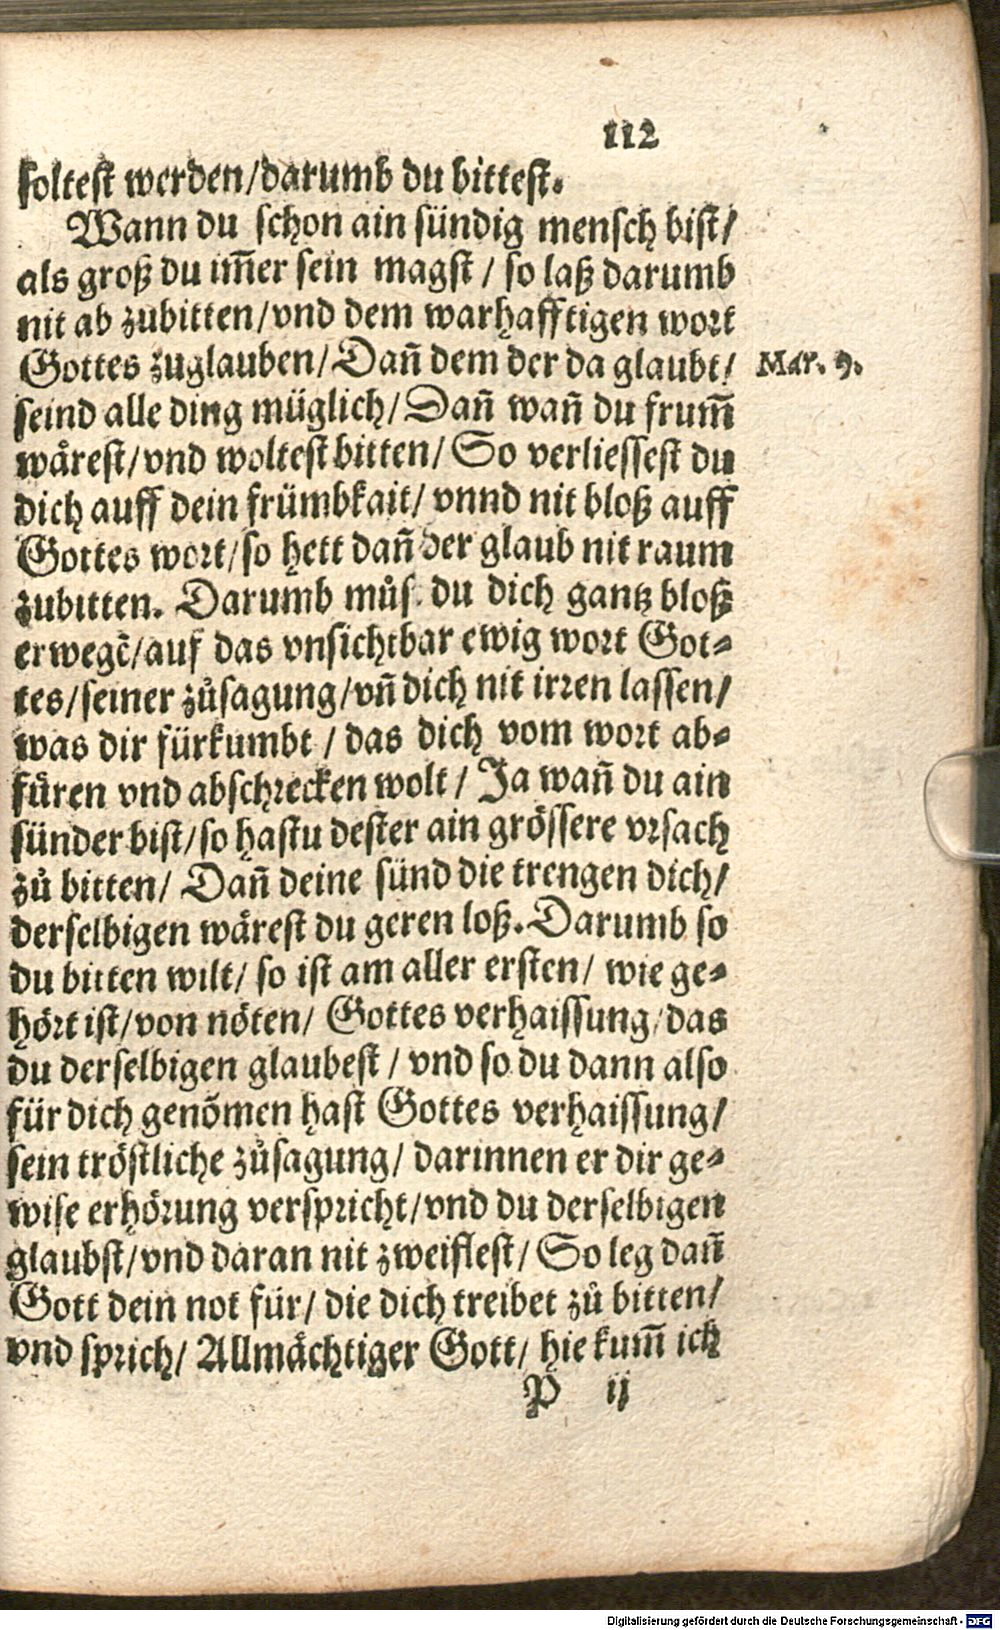 112
soltest werden/darumb du bittest.
Wann du schon ain sündig mensch bist/
als groß du im̃er sein magst / so laß darumb
nit ab zubitten/vnd dem warhafftigen wort
Gottes zuglauben/Dañ dem der da glaubt/
Mar. 9.
seind alle ding müglich/Dañ wañ du frum̃
wårest/vnd woltest bitten/ So verliessest du
dich auff dein frümbkait/ vnnd nit bloß auff
Gottes wort/so hett dañ der glaub nit raum
zubitten. Darumb můs du dich gantz bloß
erwegẽ/auf das vnsichtbar ewig wort Got⸗
tes/seiner zůsagung/vñ dich nit irren lassen/
was dir fürkumbt / das dich vom wort ab⸗
fůren vnd abschrecken wolt/ Ja wañ du ain
sünder bist/so hastu dester ain grössere vrsach
zů bitten/ Dañ deine sünd die trengen dich/
derselbigen wårest du geren loß. Darumb so
du bitten wilt/ so ist am aller ersten/ wie ge⸗
hört ist/von nöten/ Gottes verhaissung/das
du derselbigen glaubest / vnd so du dann also
für dich genõmen hast Gottes verhaissung/
sein tröstliche zůsagung/ darinnen er dir ge⸗
wise erhörung verspricht/vnd du derselbigen
glaubst/vnd daran nit zweiflest/ So leg dañ
Gott dein not für/ die dich treibet zů bitten/
vnd sprich/ Allmåchtiger Gott/ hie kum̃ ich
P ij
Digitalisierung gefördert durch die Deutsche Forschungsgemeinschaft - DFG